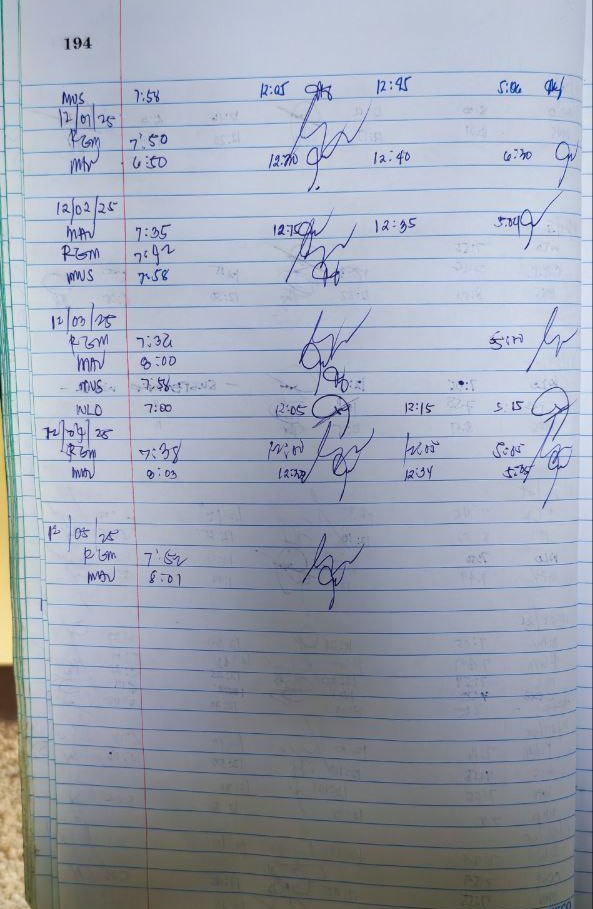 194
MUS 7:58 12:05 12:45 5:06
12/01/25
RGM 7:50
MAV 6:50 12:40 6:30
12/02/25
MAV 7:35 12:35 5:04
RGM 7:42
MUS 7:58
12/03/25
RGM 7:36
MAV 8:00
MUS 7:58
WLO 7:00 12:05 12:15 5:15
12/04/25
RGM 7:38 12:00 12:05 5:05
MAV 8:03 12:34 5:05
12/05/25
RGM 7:52
MAV 8:01